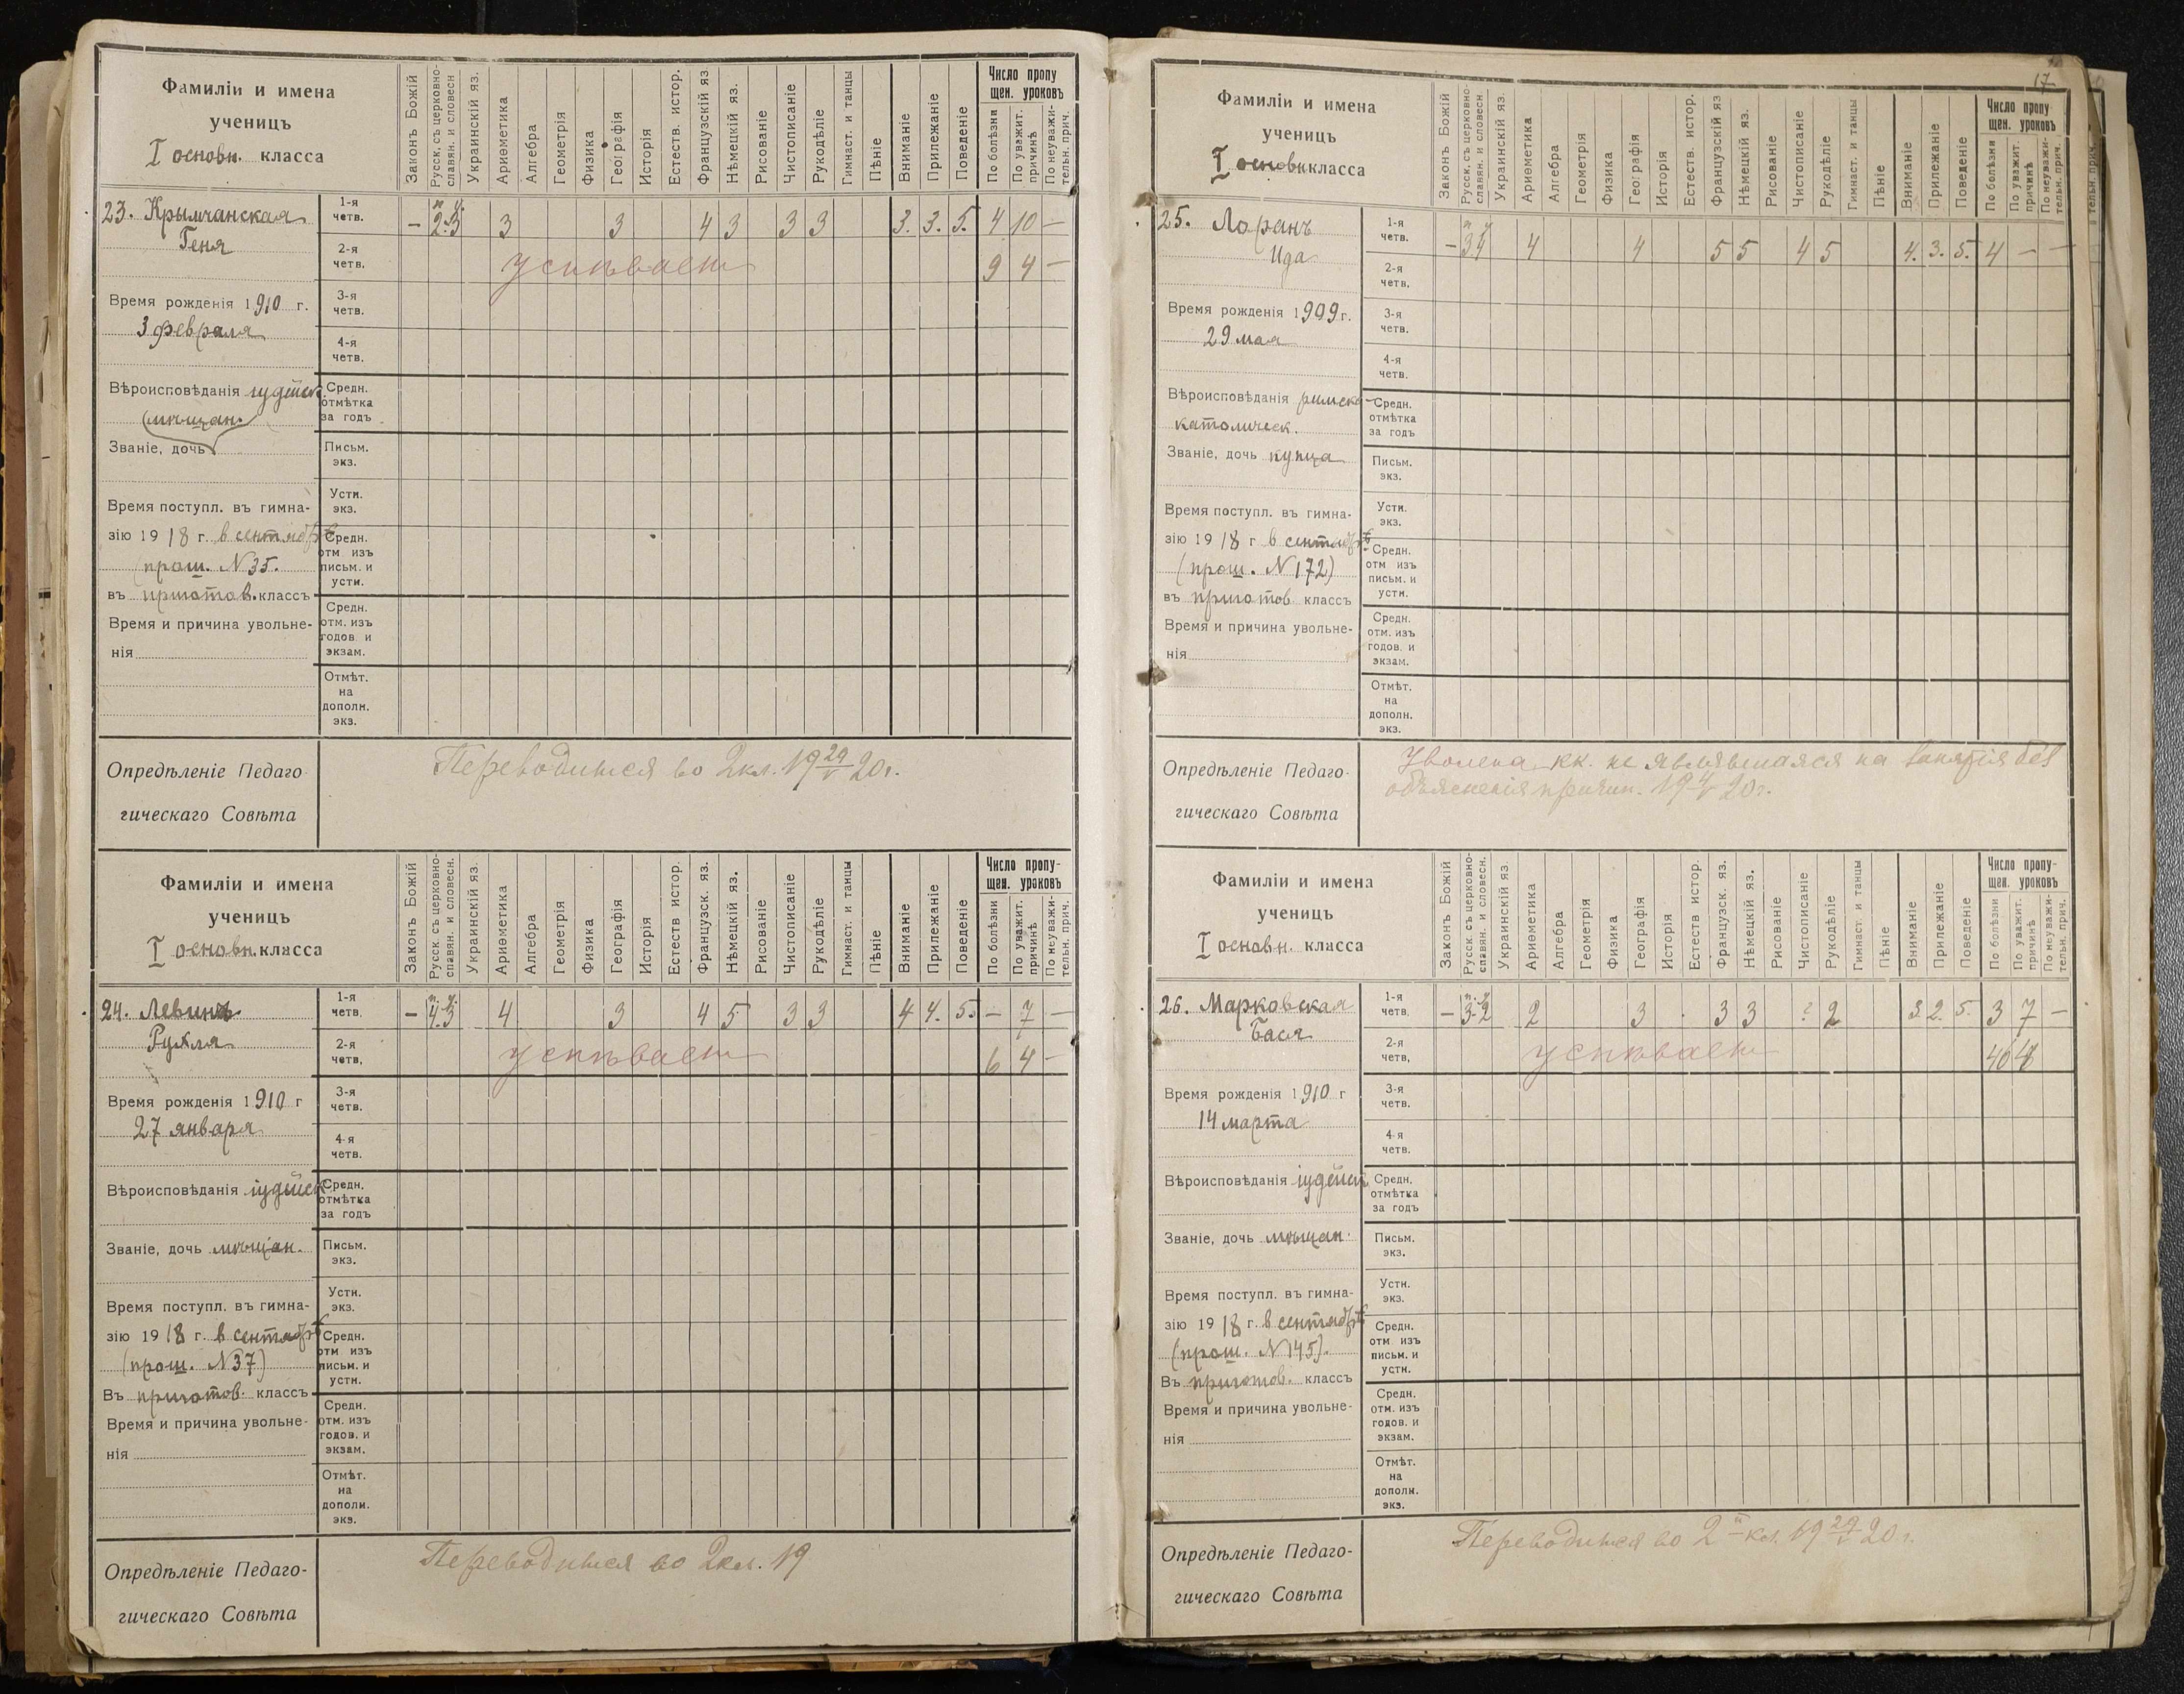 Фамиліи и имена
ученицъ
I основн. класса
Законъ Божій
Русск. съ церковно-
славян. и словесн
Украинскій яз.
Ариѳметика
Алгебра
Геометрія
Физика
Географія
Исторія
Естеств. истор.
Французскій яз
Нѣмецкій яз.
Рисованіе
Чистописаніе
Рукодѣліе
Гимнаст. и танцы
Пѣніе
Вниманіе
Прилежаніе
Поведеніе
Число пропу
щен. уроковъ
По болѣзни
По уважит.
причинѣ
По неуважи-
тельн. прич.
23. Крымчанская
Геня
1-я
четв.
– 2.3 3 3 4 3 3 3 3. 3. 5. 4 10 –
2-я
четв.
успѣваетъ 9 4 –
Время рожденія 1910 г.
3 февраля
3-я
четв.
4-я
четв.
Вѣроисповѣданія іудейск.
мѣщан.
Званіе, дочь
Средн.
отмѣтка
за годъ
Письм.
экз.
Время поступл. въ гимна-
зію 1918 г. в сентябрѣ
прош. N 35.
въ приготов. классъ
Устн.
экз.
Средн.
отм изъ
письм. и
устн.
Время и причина увольне-
нія
Средн.
отм. изъ
годов и
экзам.
Отмѣт.
на
дополн.
экз.
Опредѣленіе Педаго
гическаго Совѣта
Переводится во 2кл. 19 29/V 20г.
Фамиліи и имена
ученицъ
I основн. класса
Законъ Божій
Русск. съ церковно-
славян. и словесн.
Украинскій яз.
Ариѳметика
Алгебра
Геометрія
Физика
Географія
Исторія
Естеств истор.
Французск. яз.
Нѣмецкій яз.
Рисованіе
Чистописаніе
Рукодѣліе
Гимнаст. и танцы
Пѣніе
Вниманіе
Прилежаніе
Поведеніе
Число пропу-
щен. уроковъ
По болѣзни
По уважит.
причинѣ
По неуважи-
тельн. прич.
24. Левинъ
Рухля
1-я
четв.
– 4.3 4 3 4 5 3 3 4 4. 5. – 7 –
2-я
четв,
успѣваетъ 6 4 –
Время рожденія 1910 г
27 января
3-я
четв.
4-я
четв.
Вѣроисповѣданія іудейск
Средн.
отмѣтка
за годъ
Званіе, дочь мѣщан.
Письм.
экз.
Время поступл. въ гимна-
зію 1918 г. в сентябрѣ
(прош. N 37)
Въ приготов. классъ
Устн.
экз.
Средн.
отм изъ
письм. и
устн.
Время и причина увольне-
нія
Средн.
отм. изъ
годов. и
экзам.
Отмѣт.
на
дополн.
экз.
Опредѣленіе Педаго-
гическаго Совѣта
Переводится во 2кл. 19
17
Фамиліи и имена
ученицъ
I основн класса
Законъ Божій
Русск. съ церковно-
славян. и словесн
Украинскій яз.
Ариѳметика
Алгебра
Геометрія
Физика
Географія
Исторія
Естеств. истор.
Французскій яз
Нѣмецкій яз.
Рисованіе
Чистописаніе
Рукодѣліе
Гимнаст. и танцы
Пѣніе
Вниманіе
Прилежаніе
Поведеніе
Число пропу
щен. уроковъ
По болѣзни
По уважит.
причинѣ
По неуважи-
тельн. прич.
тельн. прич.
25. Лоранъ
Ида
1-я
четв.
– 3 4 4 4 5 5 4 5 4. 3. 5. 4 – –
2-я
четв.
Время рожденія 1909 г.
29 мая
3-я
четв.
4-я
четв.
Вѣроисповѣданія римско-
католическ.
Средн.
отмѣтка
за годъ
Званіе, дочь купца
Письм.
экз.
Время поступл. въ гимна-
зію 1918 г в сентябрѣ
(прош. N 172)
въ приготов классъ
Устн.
экз.
Средн.
отм изъ
письм. и
устн.
Время и причина увольне-
нія
Средн.
отм. изъ
годов. и
экзам.
Отмѣт.
на
дополн.
экз.
Опредѣленіе Педаго-
гическаго Совѣта
Уволена, кк. не являвшаяся на занятія без
объясненія причин. 19 4/V 20г.
Фамиліи и имена
ученицъ
I основн. класса
Законъ Божій
Русск. съ церковно-
славян. и словесн.
Украинскій яз
Ариѳметика
Алгебра
Геометрія
Физика
Географія
Исторія
Естеств истор.
Французск. яз.
Нѣмецкій яз.
Рисованіе
Чистописаніе
Рукодѣліе
Гимнаст. и танцы
Пѣніе
Вниманіе
Прилежаніе
Поведеніе
Число пропу-
щен. уроковъ
По болѣзни
По уважит.
причинѣ
По неуважи-
тельн. прич.
26. Марковская
Бася
1-я
четв,
– 3-2 2 3 3 3 ? 2 3 2. 5. 3 7 –
2-я
четв,
успѣваетъ
Время рожденія 1910 г
14 марта
3-я
четв.
4-я
четв.
Вѣроисповѣданія іудейск
Средн,
отмѣтка
за годъ
Званіе, дочь мѣщан.
Письм.
экз.
Время поступл. въ гимна-
зію 1918 г. в сентябрѣ
(прош. N 145).
Въ приготов. классъ
Устн.
экз.
Средн.
отм изъ
письм. и
устн.
Время и причина увольне-
нія
Средн.
отм. изъ
годов. и
экзам.
Отмѣт.
на
дополн.
экз.
Опредѣленіе Педаго-
гическаго Совѣта
Переводится во 2й кл. 19 29/V 20г.